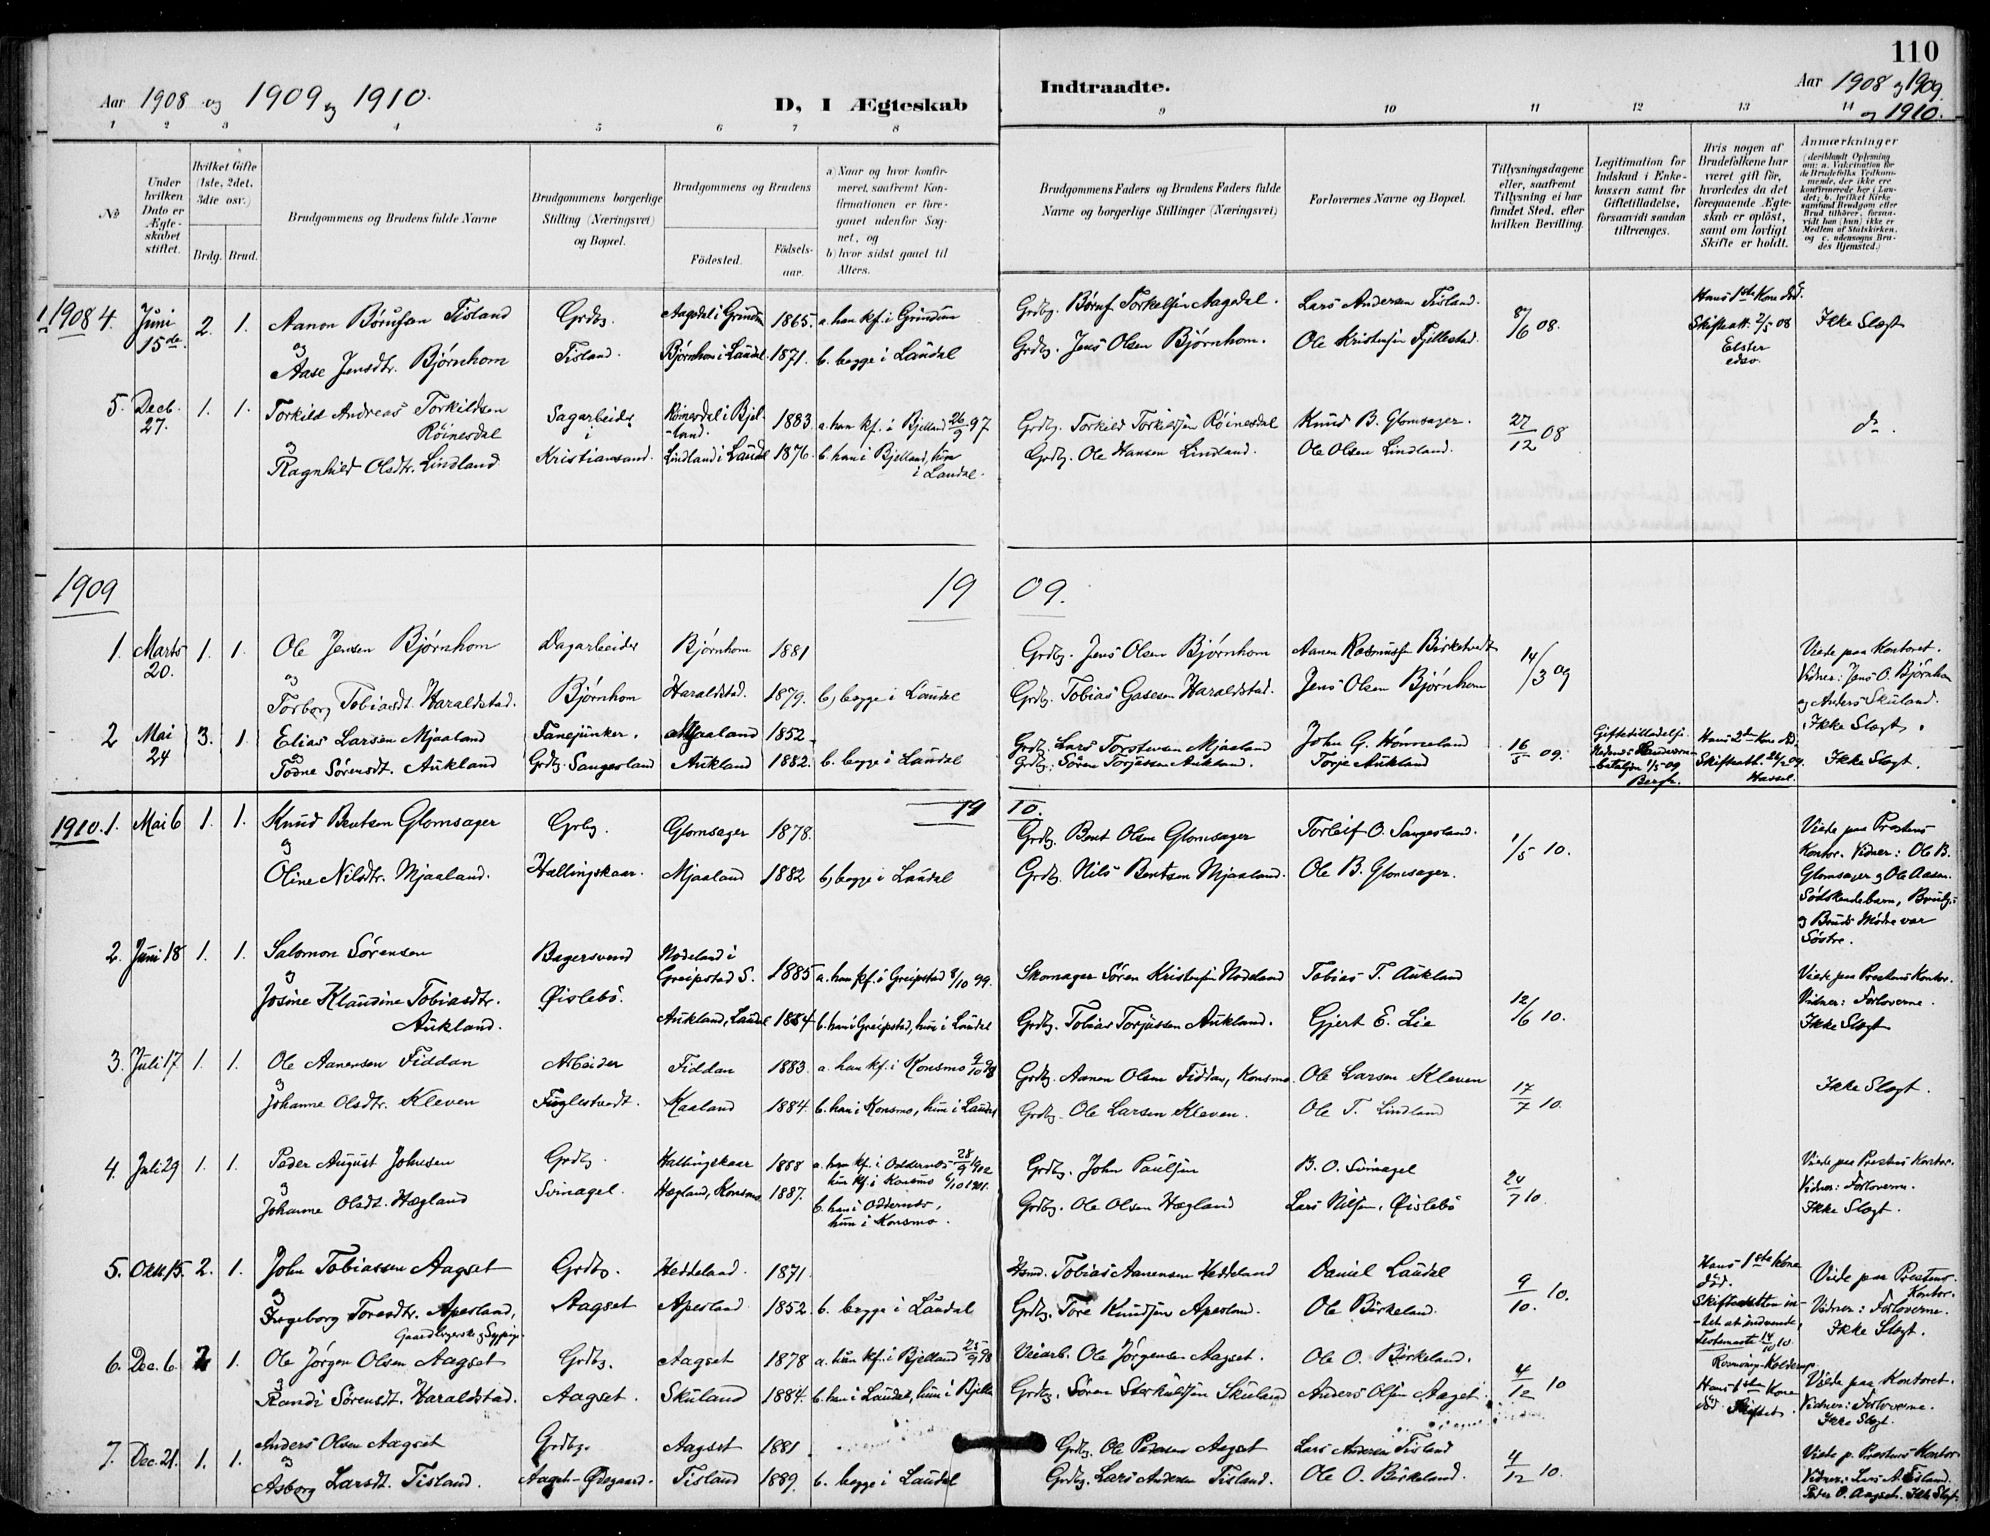 110
Aar 1908 og 1909 og 1910.
D, I Ægteskab
Indtraadte.
Aar 1908 og 1909
og 1910.
1 2 3 4 5 6 7 8 9 10 11 12 13 14
No
Under hvilken Dato er Ægteskabet stiftet.
Hvilket Gifte (1ste, 2det, 3die osv.)
Brdg. Brud.
Brudgommens og Brudens fulde Navne
Brudgommens borgerlige Stilling (Næringsvei) og Bopæl.
Brudgommens og Brudens
Fødested. Fødselsaar.
a) Naar og hvor konfirmeret, saafremt Konfirmationen er foregaaet udenfor Sognet, og
b) hvor sidst gaaet til Alters.
Brudgommens Faders og Brudens Faders fulde Navne og borgerlige Stillinger (Næringsvei)
Forlovernes Navne og Bopæl.
Tillysningsdagene eller, saafremt Tillysning ei har fundet Sted, efter hvilken Bevilling.
Legitimation for Indskud i Enkekassen samt for Giftetilladelse, forsaavidt saadan tiltrænges.
Hvis nogen af Brudefolkene har været gift før, hvorledes da det foregaaende Ægteskab er opløst, samt om lovligt Skifte er holdt.
Anmærkninger
1908 4. Juni 15de 2. 1. Aanon Børufsen Tisland Grdbr. Aagedal i Grindum 1865. a. han kf. i Grindum Grdbr. Børuf Torkelsen Aagedal. Lars Andersen Tisland. 8/6 08. Hans 1ste Kone død. Skifteatt. 2/5 08 Ikke Slægt
og
Aase Jensdtr. Bjørnhom Tisland. Bjørnhom i Laudal 1871. b. begge i Laudal Grdbr. Jens Olsen Bjørnhom. Ole Kristensen Fjellestad.
5. Decb. 27. 1. 1. Torkild Andreas Torkildsen Røinesdal Sagarbeider i Røinesdal i Bjelland. 1883. a. han kf. i Bjelland 26/9 97 Grdbr. Torkild Torkildsen Røinesdal Knud B. Glomsager. 27/12 08 do.
og
Ragnhild Olsdtr. Lindland Kristiansand. Lindland i Laudal 1876. b. han i Bjelland, hun i Laudal. Grdbr. Ole Hansen Lindland. Ole Olsen Lindland.
1909 19 09.
1. Marts 20. 1. 1. Ole Jensen Bjørnhom Dagarbeider Bjørnhom 1881 Grdbr. Jens Olsen Bjørnhom Aanen Rasmussen Birketvedt 14/3 09 Viede paa Kontoret.
og Vidner: Jens O. Bjørnhom
Torborg Tobiasdt. Haraldstad. Bjørnhom Haraldstad. 1879. b) begge i Laudal Grdbr. Tobias Gasesen Haraldstad. Jens Olsen Bjørnhom og Anders Skuland. Ikke Slægt.
2 Mai 24 3. 1 Elias Larsen Mjaaland Fanejunker. Mjaaland 1852. Grdbr. Lars Torstensen Mjaaland John G. Hønneland 16/5 09. Hans 2den Kone død.
og
Todne Sørensdt. Aukland Grdbr. Sangesland Aukland 1882. b. begge i Laudal Grdbr. Søren Torjussen Aukland. Torje Aukland Ikke Slægt.
19 10.
1910. 1. Mai 6 1. 1. Knud Bentsen Glomsager Grbr. Glomsager 1878. Grdbr. Bent Olsen Glomsager Torleif O. Sangesland. 1/5 10. Viede paa Prestens
og Kontor. Vidner: Ole B.
Oline Nilsdtr. Mjaaland. Hallingskaar. Mjaaland 1882 b) begge i Laudal Grdbr. Nils Bentsen Mjaaland. Ole B. Glomsager. Glomsager og Ole Aasen.
Sødskendebarn, Brudg.
og Bruds Mødre var
Søstre.
2. Juni 18 1. 1. Salomon Sørensen Bagersvend Nodeland i Greipstad S. 1885 a. han kf. i Greipstad 8/10 99. Skomager Søren Kristensen Nodeland Tobias T. Aukland 12/6 10. Viede paa Prestens Kontor.
og Vidner: Forloverne.
Josine Klaudine Tobiasdtr. Aukland. Øislebø. Aukland, Laudal 1884 b. han i Greipstad, hun i Laudal Grdbr. Tobias Torjussen Aukland. Gjert E. Lie Ikke Slægt
3. Juli 17 1. 1. Ole Aanensen Fiddan Arbeider Fiddan 1883. a. han kf. i Konsmo 9/10 98 Grdbr. Aanen Olsen Fiddan, Konsmo. Ole Larsen Kleven 17/7 10. Ikke Slægt.
og
Johanne Olsdtr. Kleven Fuglestvedt. Kaaland 1884. b. han i Konsmo, hun i Laudal Grdbr. Ole Larsen Kleven. Ole T. Lindland
4. Juli 29 1. 1. Peder August Johnsen Grdbr. Hallingskaar 1888 a. han kf. i Oddernes 28/9 1902 hun kf. i Konsmo 6/10 1901. Grdbr. John Paulsen B. O. Svinagel 24/7 10. Viede paa Prestens Kontor.
og Vidner: Forloverne.
Johanne Olsdt. Hægland Svinagel. Hægland, Konsmo 1887. b. han i Oddernes, hun i Konsmo. Grdbr. Ole Olsen Hægland Lars Nilsen, Øislebø Ikke Slægt.
5. Okt. 15. 2. 1. John Tobiassen Aagset Grdbr. Heddeland. 1871. Hsmd. Tobias Aanensen Heddeland Daniel Laudal 9/10. 10. Hans 1ste Kone død. Viede paa Prestens Kontor.
og Vidner: Forloverne.
Ingeborg Toresdtr. Apesland, Aagset Apesland 1852. b. begge i Laudal Grdbr. Tore Knudsen Apesland. Ole Birkeland. Ikke Slægt.
6. Dec. 6. 2 1. Ole Jørgen Olsen Aagset Grdbr. Aagset 1878 a. hun kf. i Bjelland 25/9 98 Veiarb. Ole Jørgensen Aagset. Ole O. Birkeland. 4/12 10 Hans 1ste Kone død. Viede paa Kontoret.
og Vidner: Forloverne.
Randi Sørensdt. Haraldstad. Aagset. Skuland 1884. b. han i Laudal, hun i Bjella Grdbr. Søren Sterkulsen Skuland Anders Olsen Aagset Ikke Slægt.
7. Dec. 21. 1. 1. Anders Olsen Aagset Grdbr. Aagset 1881. Grdbr. Ole Pedersen Aagset Lars Andersen Tisland 4/12 10. Viede p. Prestens Kontor
og Vidner: Lars A. Tisland.
Asborg Larsdt. Tisland. Aagset-Ødegaard. Tisland 1889. b. begge i Laudal Grdbr. Lars Andersen Tisland. Ole O. Birkeland. Peder O. Aagset. Ikke Slægt